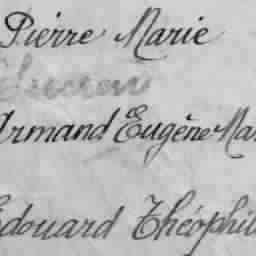 Pierre Marie
Armand Eugène Mar
Edouard Théophil